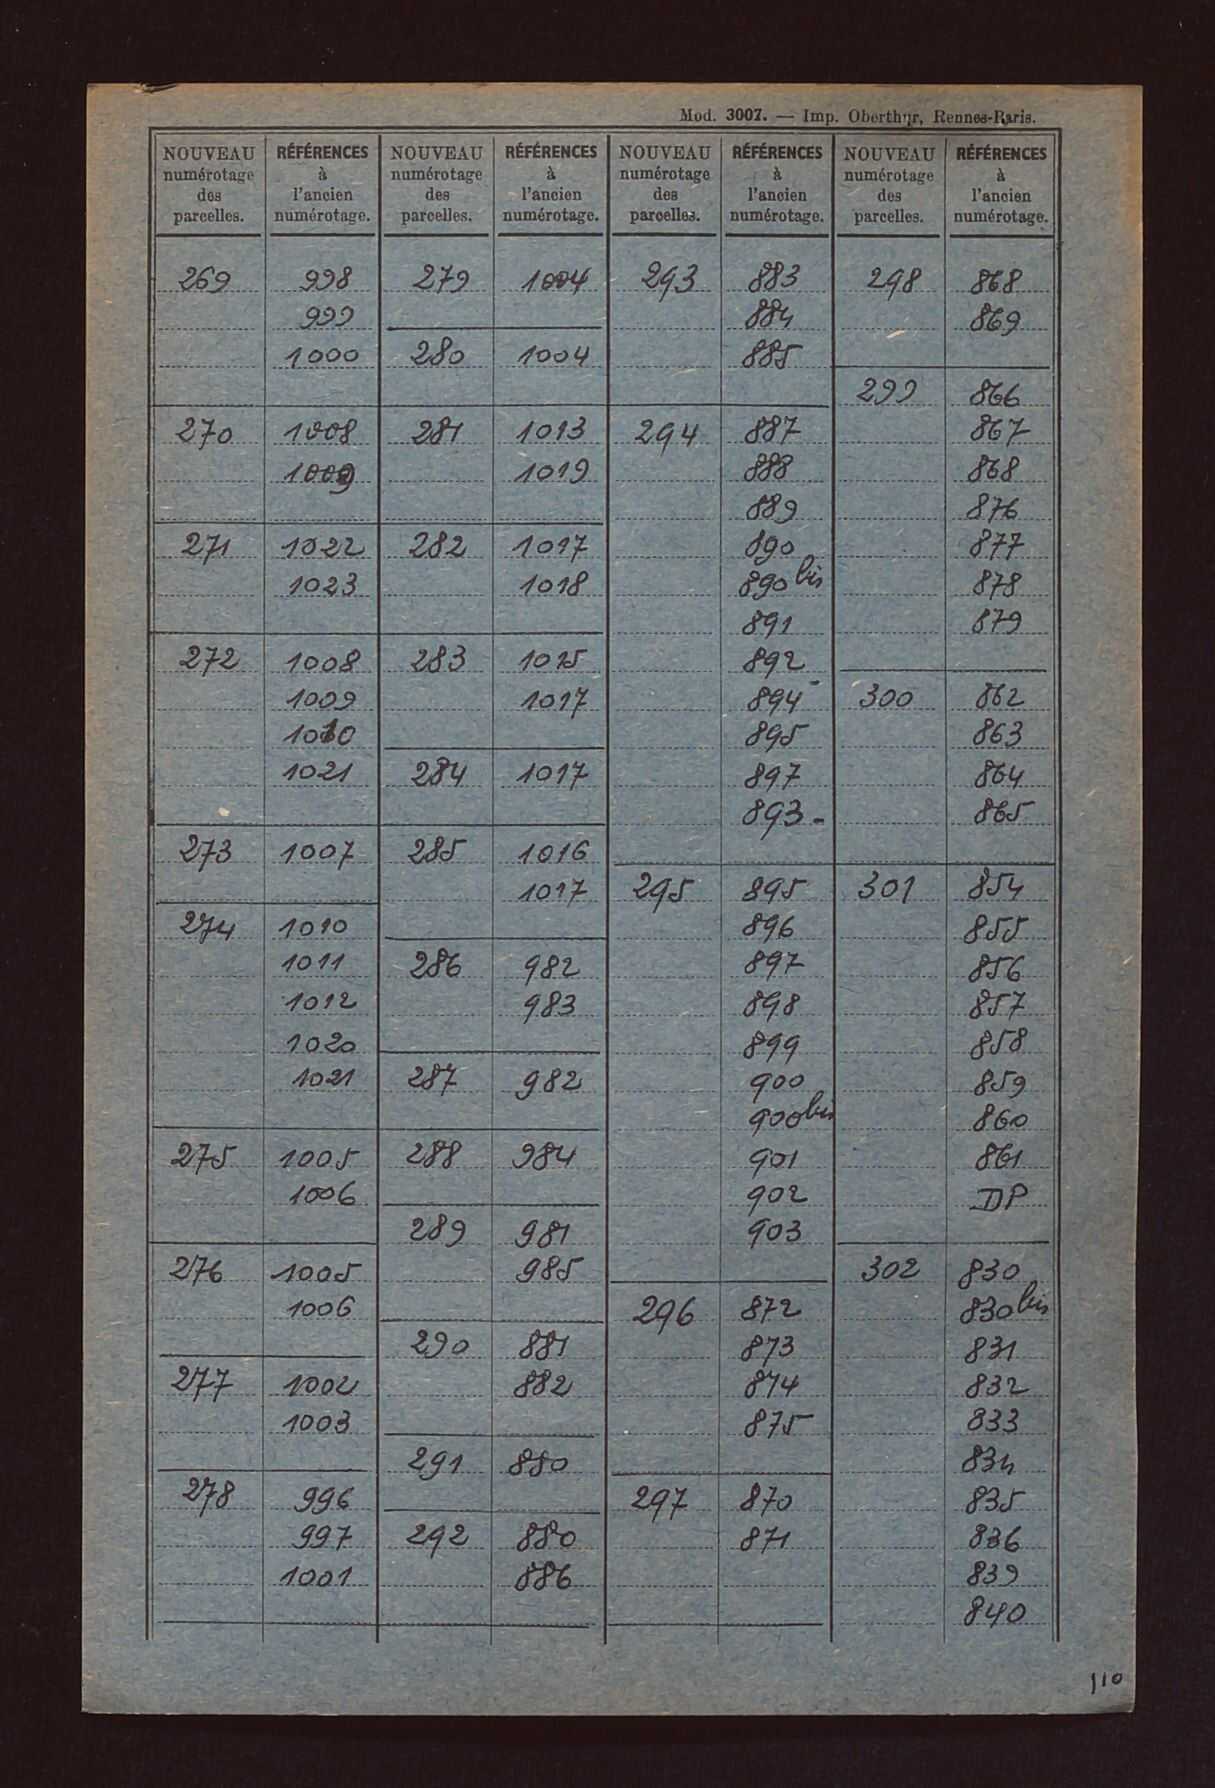 Mod. 3007. — Imp. Oberthur, Rennes-Paris.
NOUVEAU numérotage des parcelles. RÉFÉRENCES à l'ancien numérotage. NOUVEAU numérotage des parcelles. RÉFÉRENCES à l'ancien numérotage. NOUVEAU numérotage des parcelles. RÉFÉRENCES à l'ancien numérotage. NOUVEAU numérotage des parcelles. RÉFÉRENCES à l'ancien numérotage.
269 998
999
1000
270 1008
1009
271 1022
1023
272 1008
1009
1010
1021
273 1007
274 1010
1011
1012
1020
1021
275 1005
1006
276 1005
1006
277 1002
1003
278 996
997
1001
279 1004
280 1004
281 1013
1019
282 1017
1018
283 1015
1017
284 1017
285 1016
1017
286 982
983
287 982
288 984
289 981
985
290 881
882
291 880
292 880
886
293 883
884
885
294 887
888
889
890
890 bis
891
892
894
895
897
893
295 895
896
897
898
899
900
900 bis
901
902
903
296 872
873
874
875
297 870
871
298 868
869
299 866
867
868
876
877
878
879
300 862
863
864
865
301 854
855
856
857
858
859
860
861
DP
302 830
830 bis
831
832
833
834
835
836
839
840
110